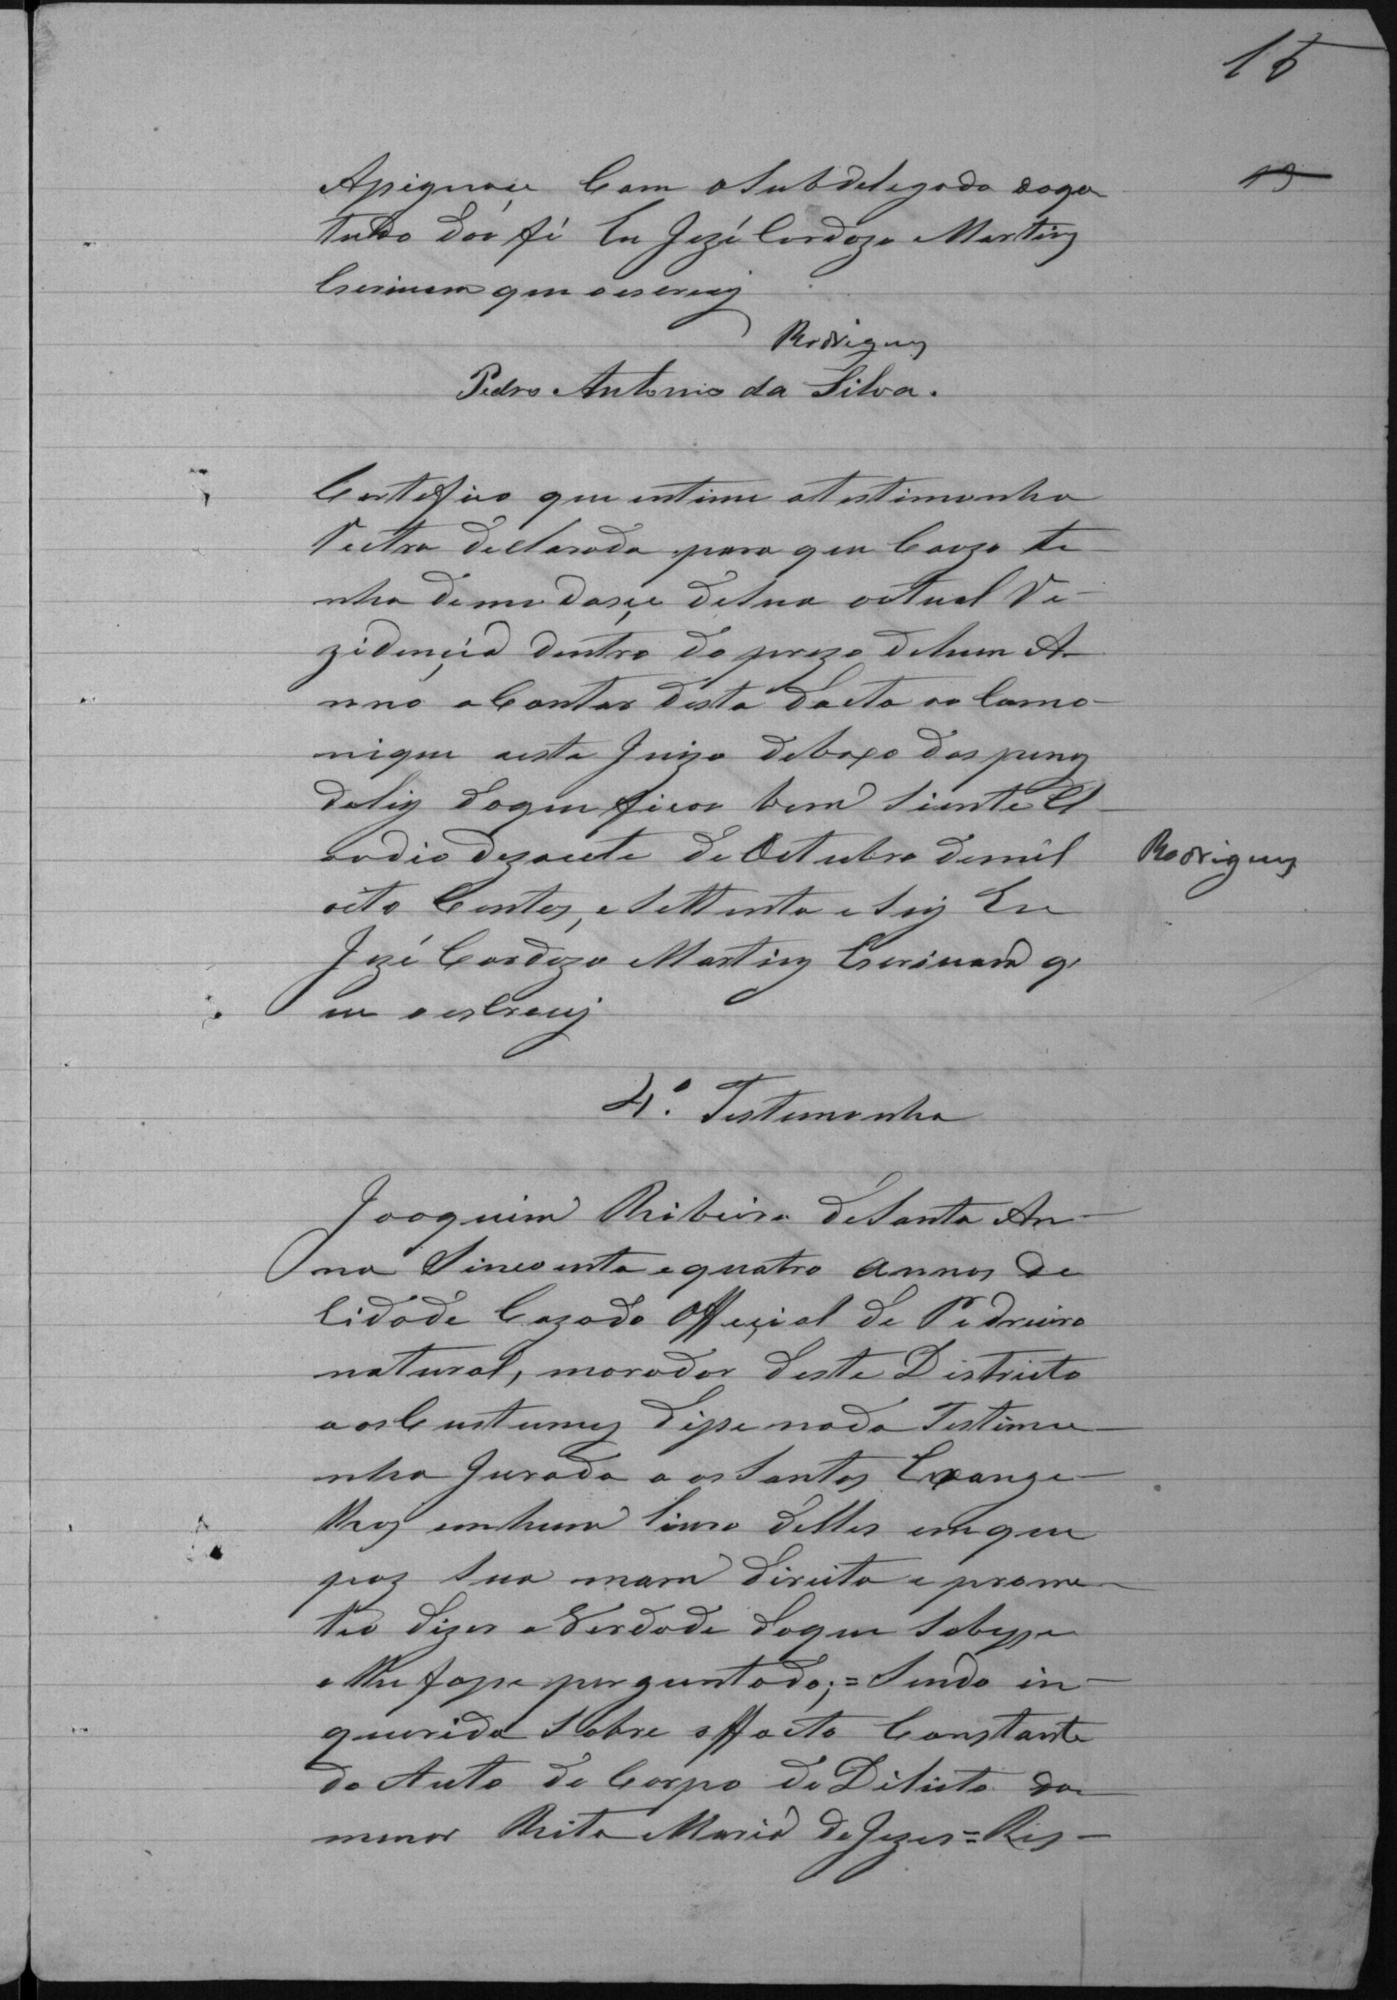 15
13
Assignaçe Com o Subdelegado doque
tudo Dóu fé Eu Jozé Cardozo Martins
Escrivam que o escrevj
Rodrigues
Pedro Antonio da Silva.
Certefico que entimei a testimonha
Retra declarada para que Cauzo te-
nha de mudarçe de Sua actual Re-
zidençia dentro do prazo de hum A-
nno a Contar desta dacta o Como-
nique a este Juizo debaxo das penas
da lej doque ficou bem Siente El-
Rodrigues
oito Centos, e Settenta e Seis Eu
Jozé Cardozo Martins Escrivam q'
eu o escrevj
4ª. Testemonha
Joaquim Ribeiro de Santa An-
na Sincoenta e quatro annos de
hidade Cazado Official de Pedreiro
natural, morador deste Districto
aos Custumes Disse nada Testimu-
nha Jurada aos Santos Evange-
lhos em hum livro delles em que
poz Sua mam direita e prome-
teo dizer a Verdade doque Sobesse
e lhe fosse perguntado; = Sendo in-
querido Sobre o ffacto Constante
do Auto de Corpo de Delicto da
menor Rita Maria de Jezus = Res-